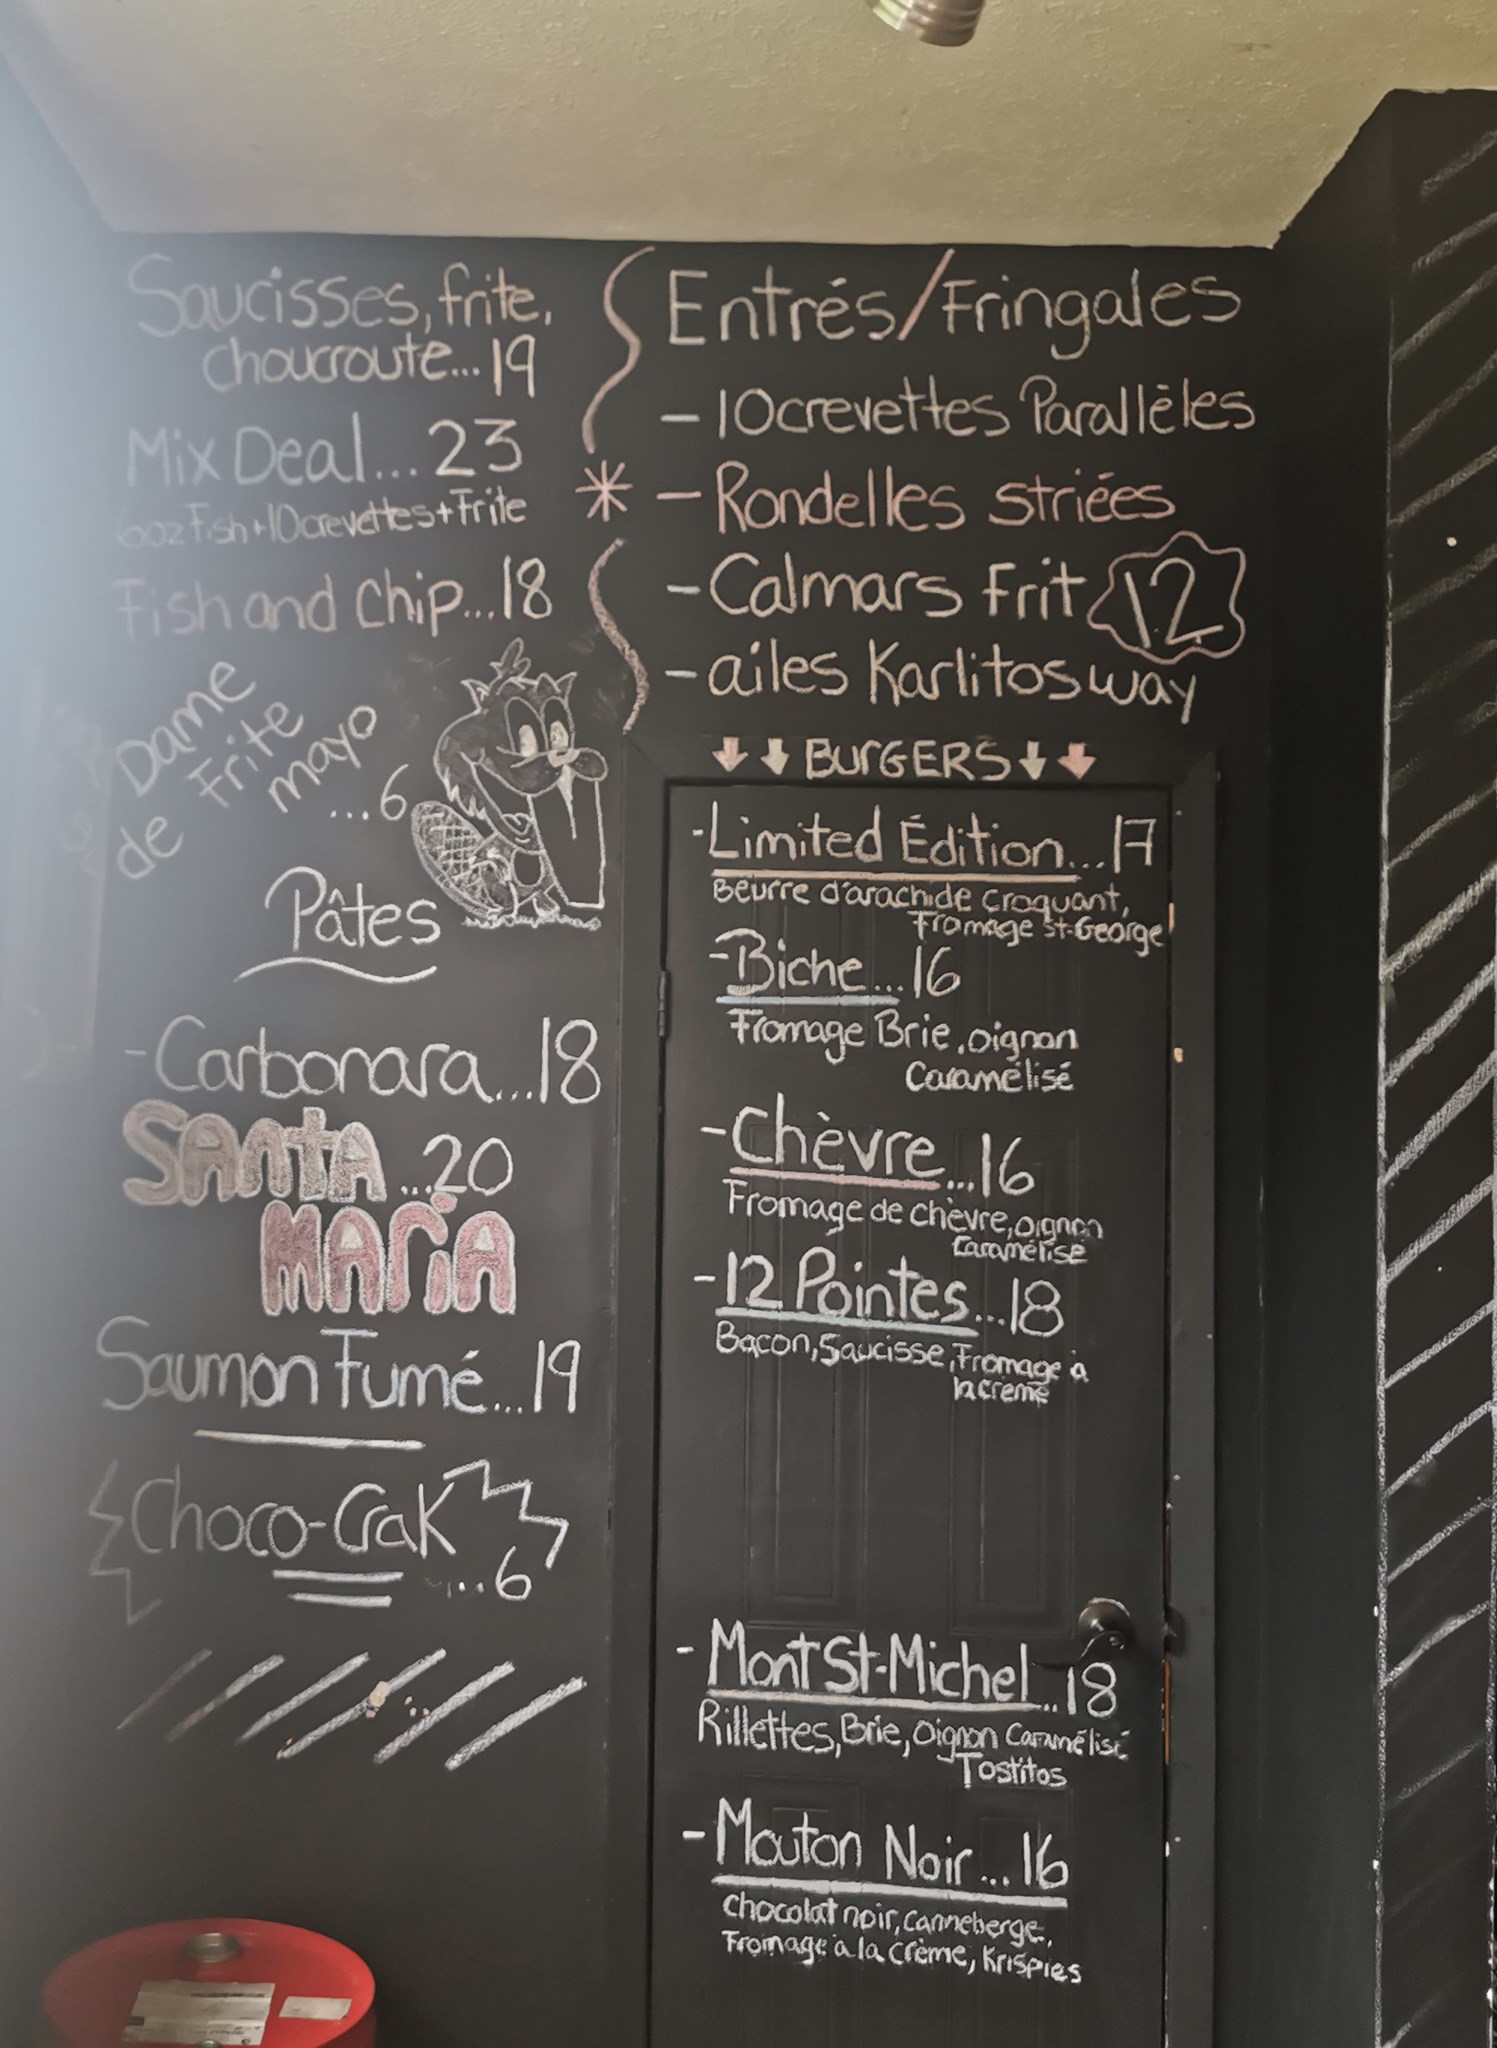 Saucisses, frite,
choucroute...19
Mix Deal...23
6oz Fish+10crevettes+Frite
Fish and Chip...18
Dame
de Frite
mayo
...6
Pâtes
-Carbonara...18
Santa
...20
Maria
Saumon Fumé...19
Choco-Crak
...6
Entrés/Fringales
- 10crevettes Parallèles
* - Rondelles striées
- Calmars Frit 12
- ailes Karlitos way
BURGERS
-Limited Édition...17
Beurre d'arachide croquant,
Fromage St-George
-Biche...16
Fromage Brie, oignon
Caramélisé
-Chèvre...16
Fromage de chèvre, oignon
Caramélisé
-12 Pointes...18
Bacon, Saucisse, Fromage à
la crème
-Mont St-Michel...18
Rillettes, Brie, oignon Caramélisé
Tostitos
-Mouton Noir...16
chocolat noir, canneberge,
Fromage à la crème, Krispies